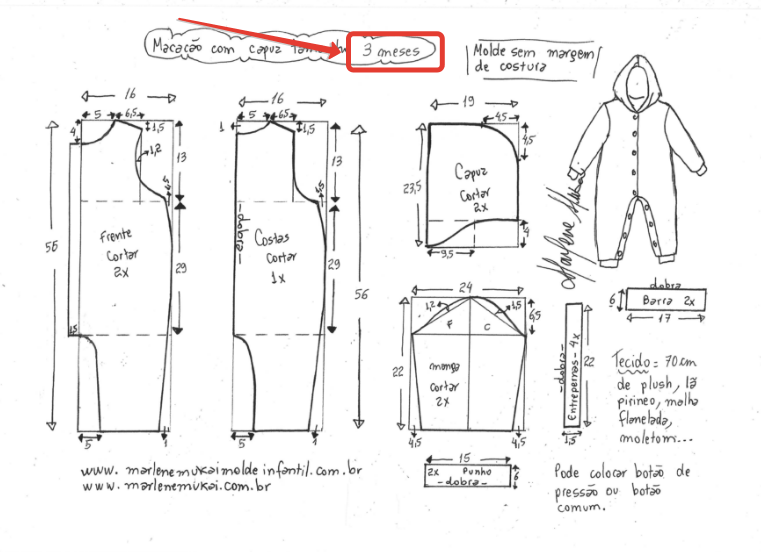 Macacão com capuz tamanho 3 meses
Molde sem margem
de costura
16
5
6,5
4
1,5
1,2
13
4,5
56
Frente
cortar
2x
29
1,5
5
1
16
5
6,5
1
1,5
13
5,5
-dobra-
Costas
cortar
1x
29
56
5
1
19
4,5
4,5
23,5
Capuz
cortar
2x
4
9,5
24
1,2
1,5
6,5
F
C
22
manga
cortar
2x
4,5
4,5
15
2x Punho
-dobra-
6
-dobra-
Entrepernas - 4x
22
1,5
dobra
6
Barra 2x
17
Marlene Mukai
Tecido = 70cm
de plush, lã
pirineo, malha
flanelada,
moletom...
Pode colocar botão de
pressão ou botão
comum.
www.marlenemukaimoldeinfantil.com.br
www.marlenemukai.com.br